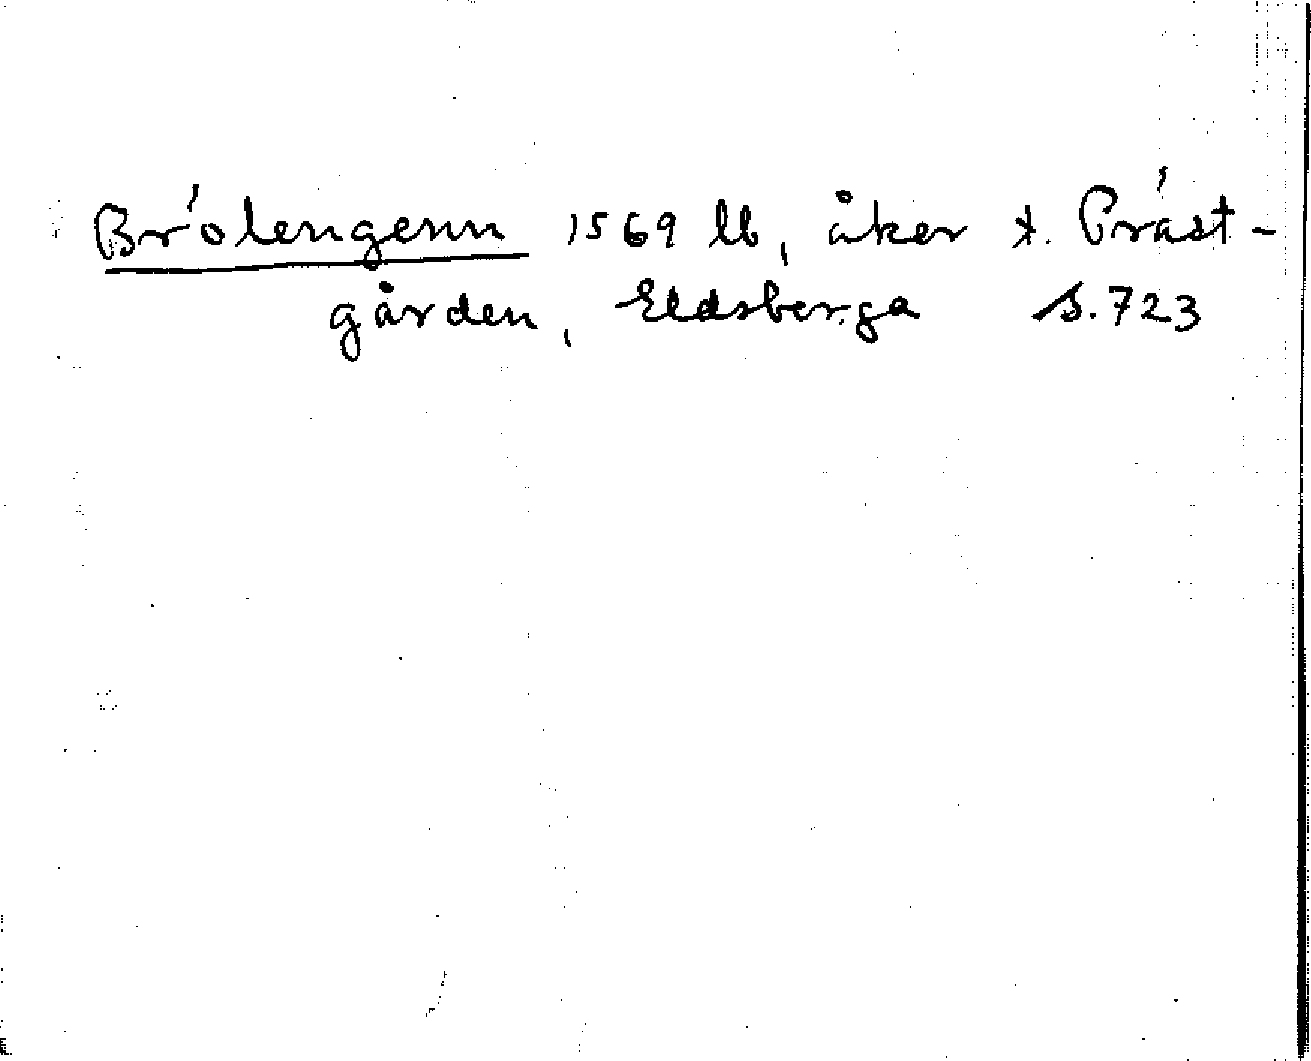 Brölengenn 1569 lb, åker t. Präst-
gården, Eldsberga s. 723